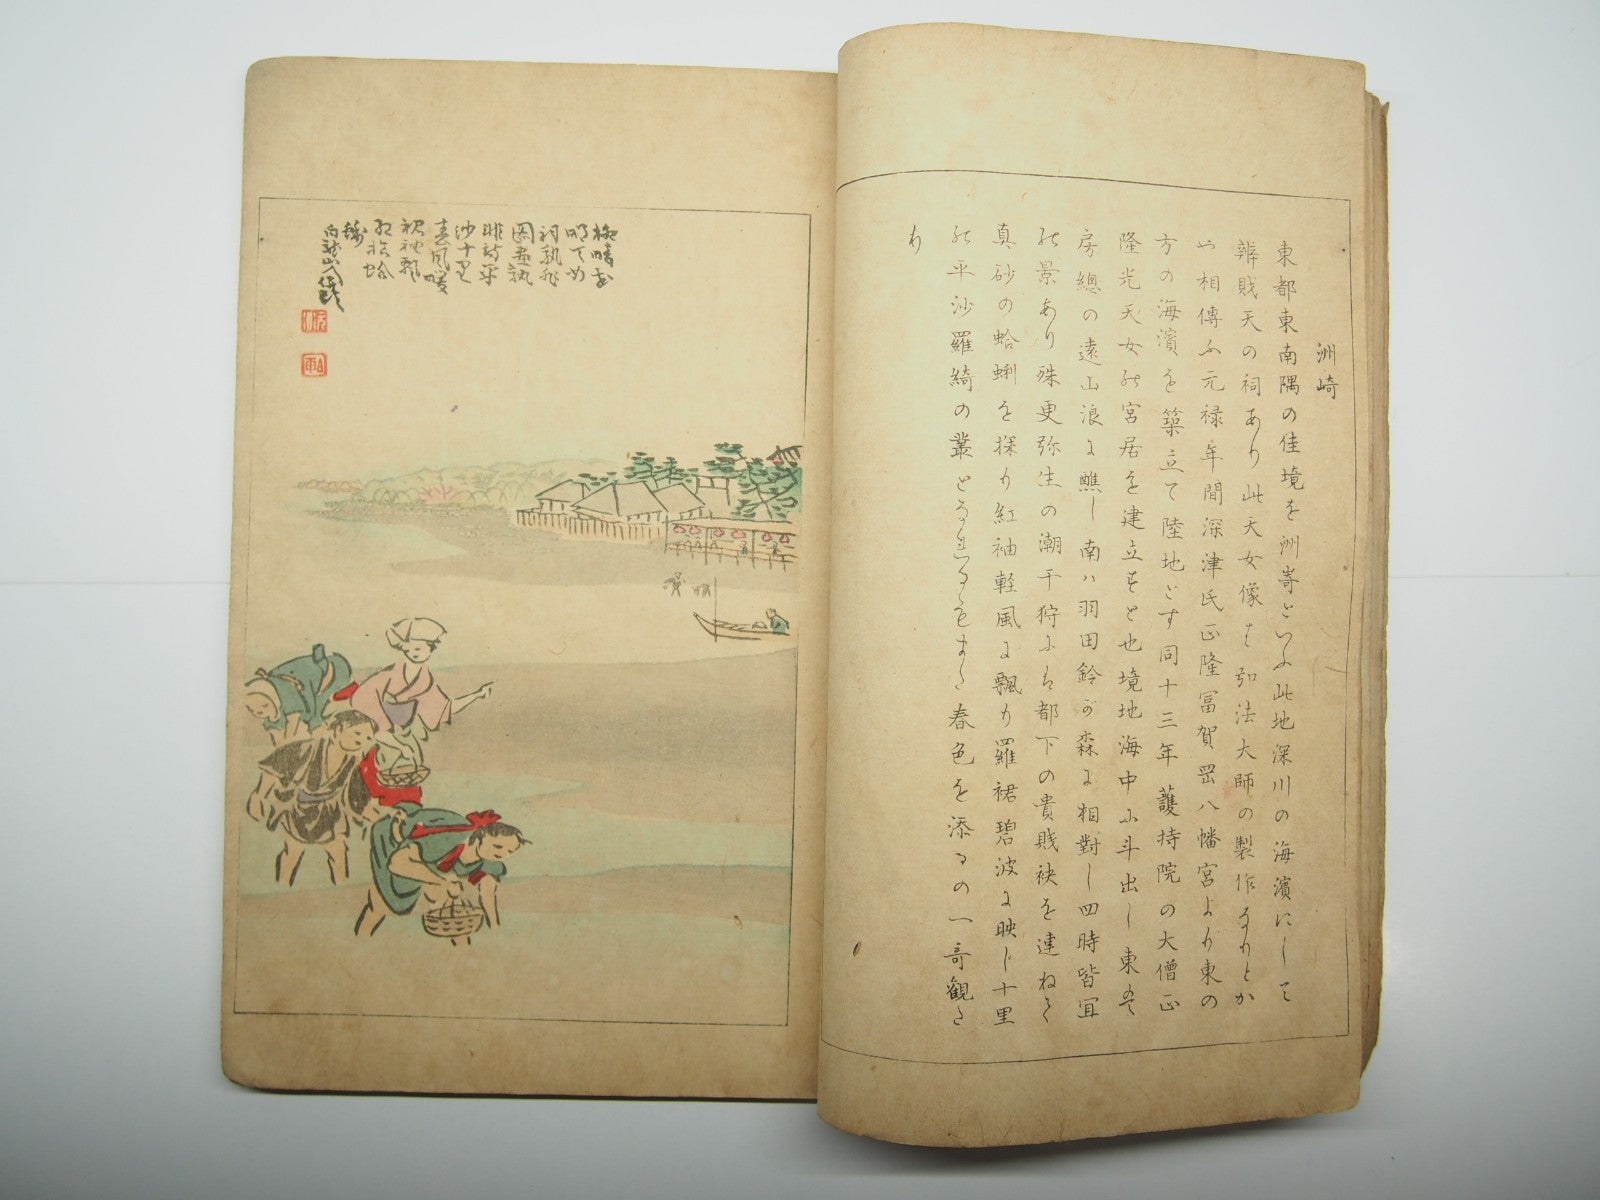 洲崎
東都東南隅の佳境を洲崎といふ此地深川の海濱にして
辨賎天の祠あり此天女像は弘法大師の製作なりとか
や相傳ふ元禄年間深津氏正隆冨賀岡八幡宮より東の
方の海濱を築立て陸地とす同十三年護持院の大僧正
隆光天女の宮居を建立すと也境地海中に斗出し東は
房總の遠山浪に醮し南ハ羽田鈴が森に相對し四時皆宜
の景あり殊更弥生の潮干狩には都下の貴賎袂を連ねて
真砂の蛤蜊を探り紅袖軽風に飄り羅裙碧波に映じ十里
の平沙羅綺の叢となれるもまた春色を添るの一奇観た
り
祠孰非
図画孰
非詩平
沙十里
春風暖
裙袖飄
紅拾蛤